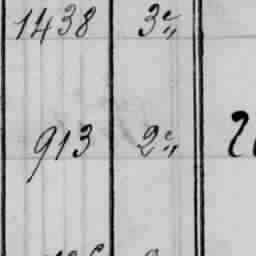 1438 3e„
913 2e„